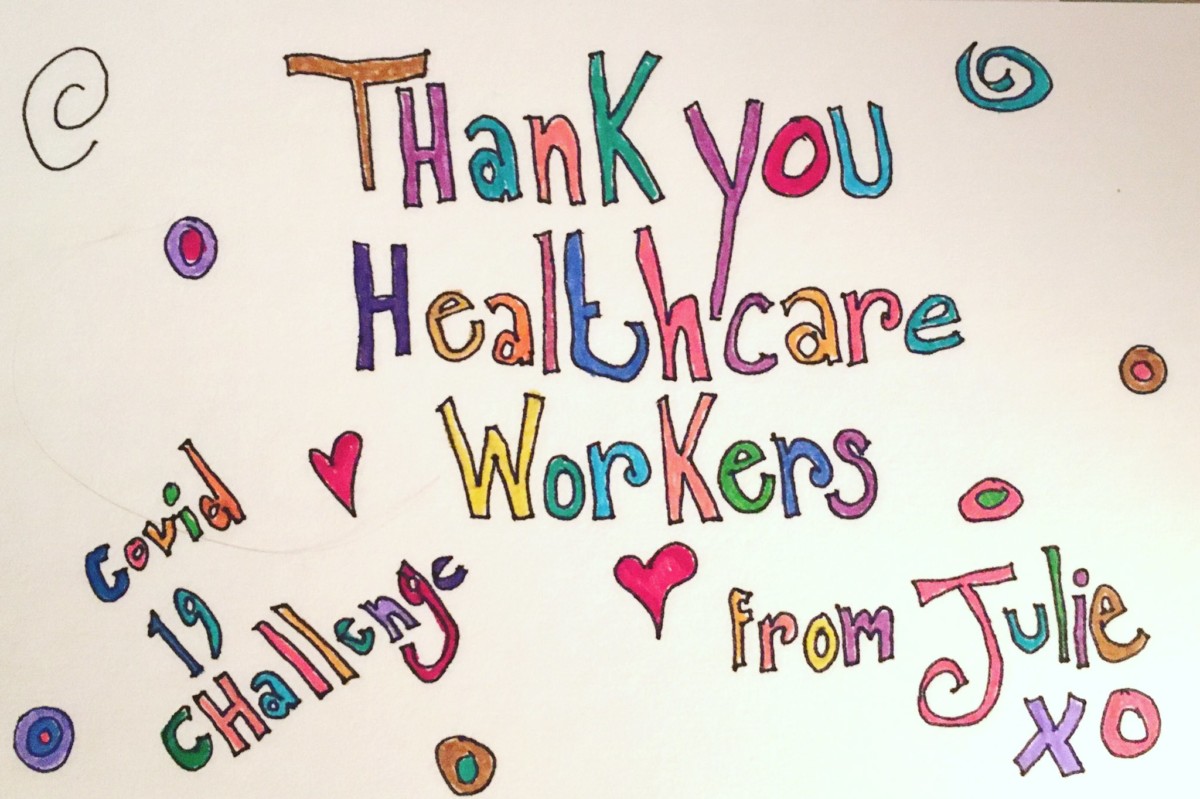 THanK you
Healthcare
WorKers
Covid
19
CHallenge
from Julie
xo